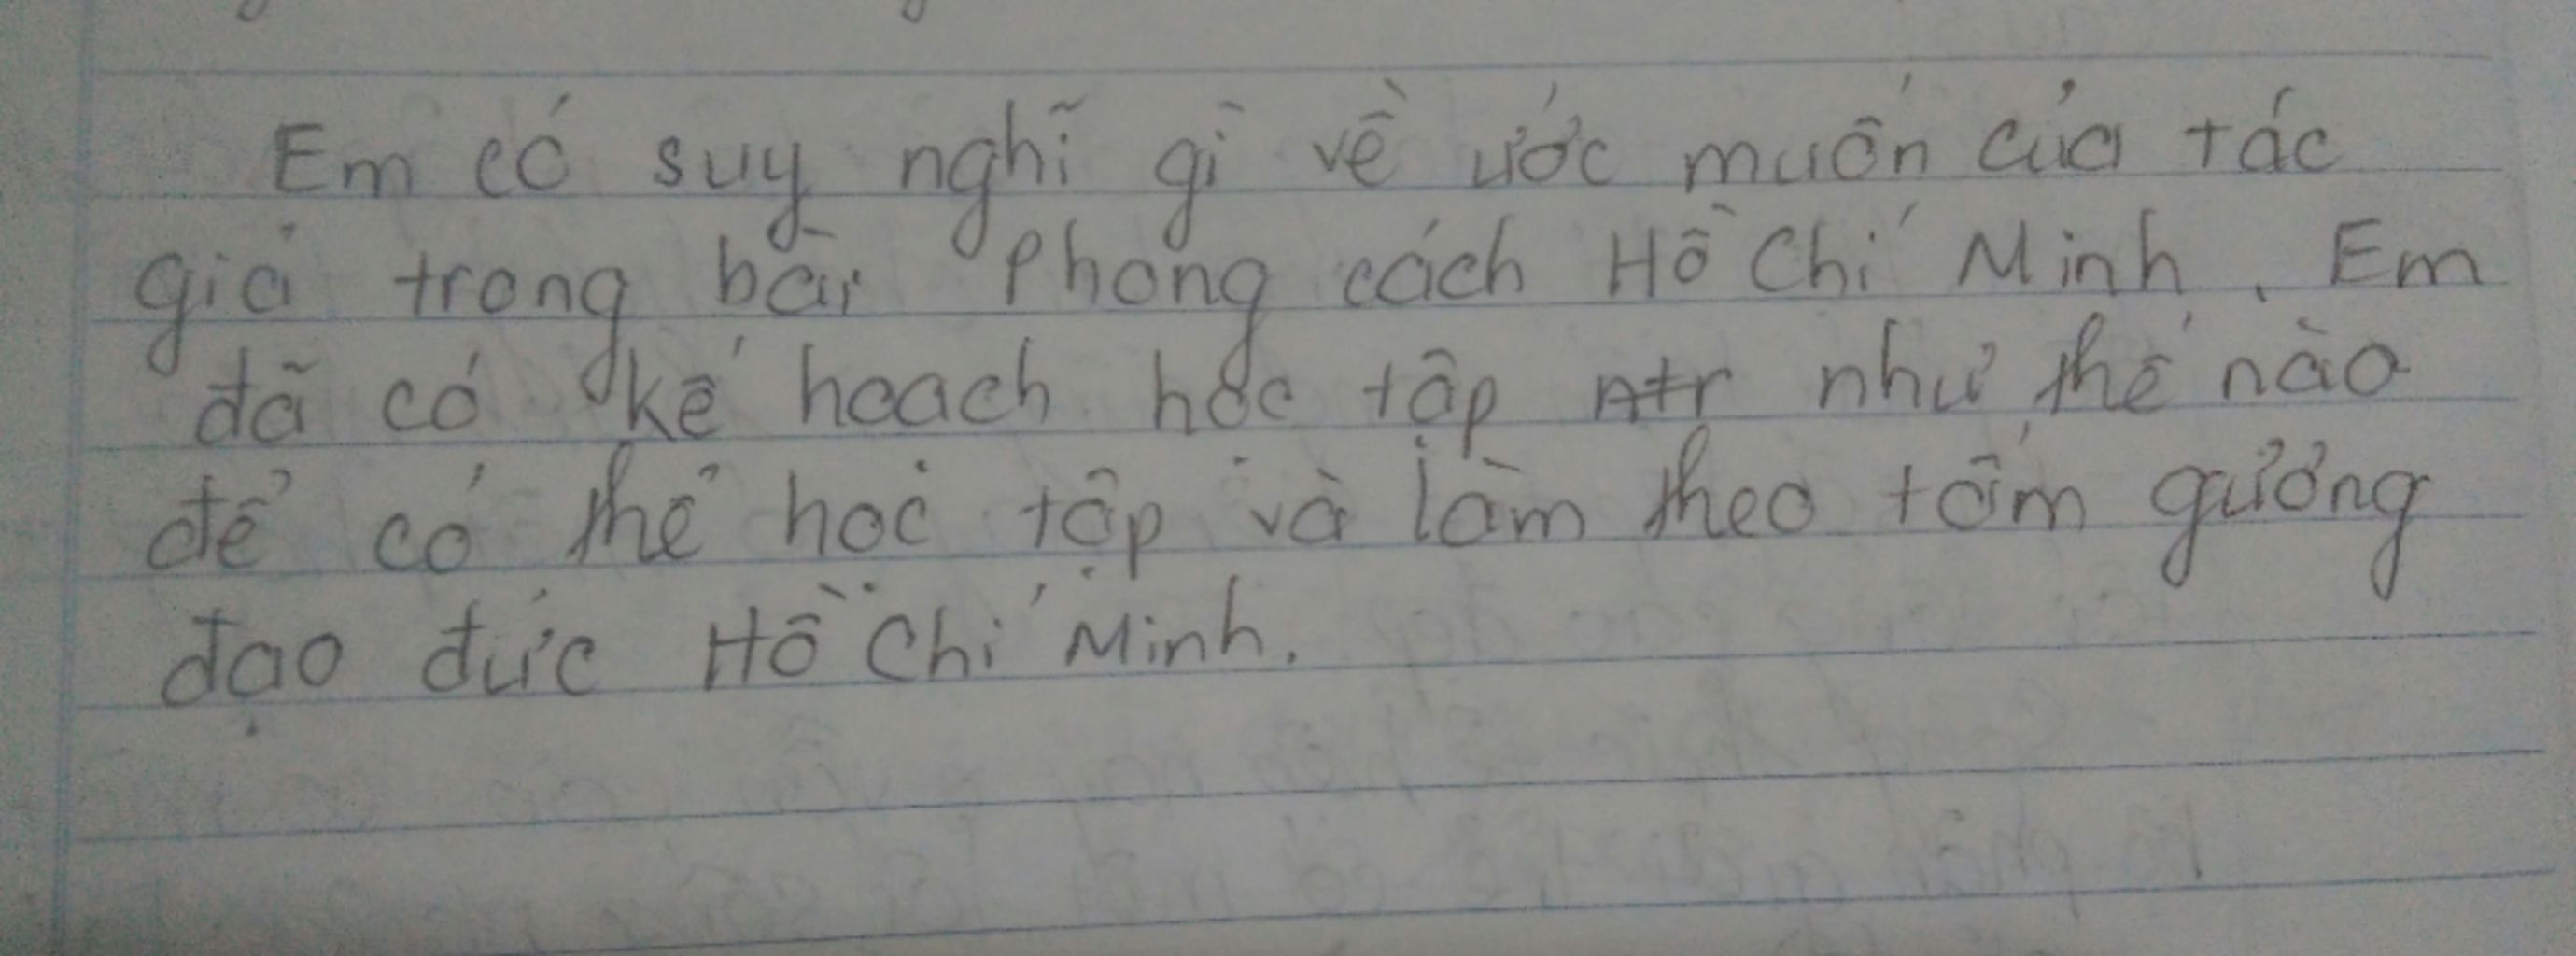 Em có suy nghĩ gì về ước muốn của tác
giả trong bài Phong cách Hồ Chí Minh. Em
đã có kế hoạch học tập như thế nào
để có thể học tập và làm theo tấm gương
đạo đức Hồ Chí Minh.